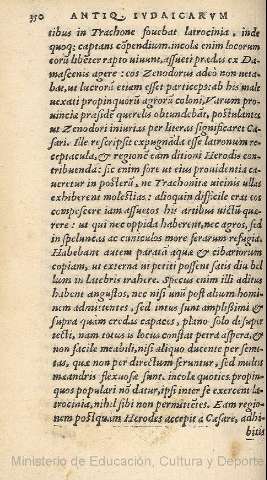 350 ANTIQ. IVDAICARVM
tibus in Trachone fouebat latrocinia, inde
quoq; captans cōpendium. incolæ enim locorum
eorū libēter rapto uiuunt, assueti prædas ex Da-
mascenis agere: eos Zenodorus adeò non ueta-
bat, ut lucrorū etiam esset particeps: ab his malè
uexati propinquorū agrorū coloni, Varum pro-
uinciæ præsidē querelis obtundebāt, postulantes
ut Zenodori iniurias per literas significaret Cæ-
sari. Ille rescripsit expugnāda esse latronum re-
ceptacula, & regionē eam ditioni Herodis con-
tribuendā: sic enim fore ut eius prouidentia ca-
ueretur in posterū, ne Trachonitæ uicinis ullas
exhiberent molestias: alioquin difficile erat eos
compescere iam assuetos his artibus uictū quæ-
rere: ut qui nec oppida haberent, nec agros, sed
in speluncas ac cuniculos more ferarum refugia.
Habebant autem paratā aquæ & cibariorum
copiam, ut externa ui petiti possent satis diu bel-
lum in latebris trahere. Specus enim illi aditus
habent angustos, nec nisi unū post alium homi-
nem admittentes, sed intus sunt amplissimi &
supra quàm credas capaces, plano solo desuper
tecti, nam totus is locus constat petra aspera, &
non facile meabili, nisi aliquo ducente per semi-
tas, quæ non per directum feruntur, sed multis
mæandris flexuosæ sunt. incolæ quoties propin-
quos populari nō datur, ipsi inter se exercent la-
trocinia, nihil sibi non permittētes. Eam regio-
nem postquam Herodes accepit a Cæsare, adhi-
bitis
Ministerio de Educación, Cultura y Deporte